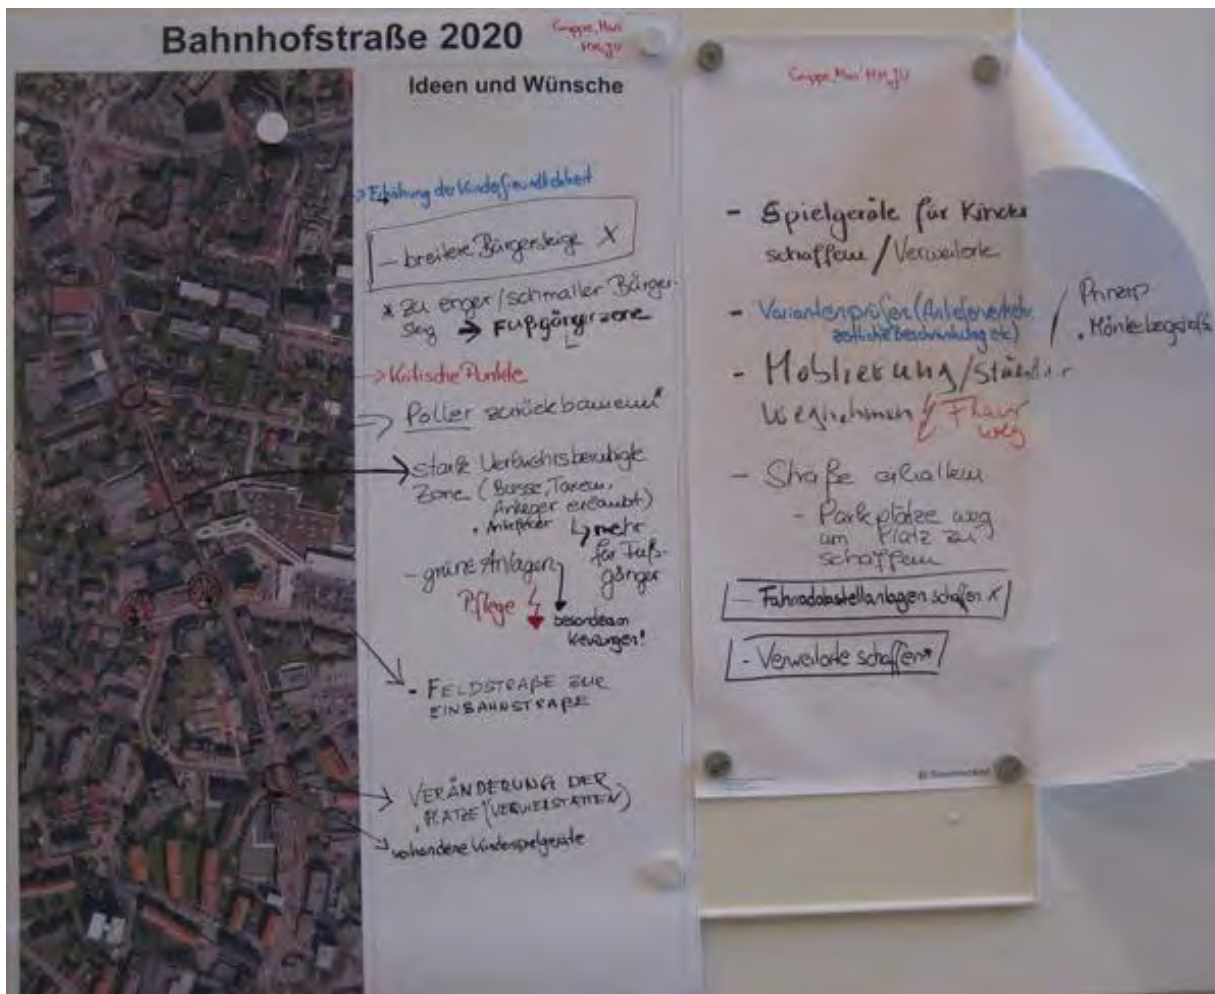 Bahnhofstraße 2020
Ideen und Wünsche
→ Erhöhung der Kinderfreundlichkeit
- breitere Bürgersteige X
* zu enger/schmaller Bürger-
steig → Fußgängerzone
→ Kritische Punkte
→ Poller zurückbauen
starke Verkehrsberuhigte
Zone (Busse, Taxen,
Anlieger erlaubt)
↳ mehr
für Fuß-
gänger
- grüne Anlagen
Pflege
besonders an
- FELDSTRAßE ZUR
EINBAHNSTRAßE
VERÄNDERUNG DER
PLÄTZE
vorhandene Kinderspielgeräte
- Spielgeräte für Kinder
schaffen / Verweilorte
- Varianten prüfen (Anlieferverkehr,
zeitliche Beschränkung etc)
Prinzip
- Möblierung/Ständer
wegnehmen
weg
- Straße erhalten
- Parkplätze weg
um Platz zu
schaffen
- Fahrradabstellanlagen schaffen X
- Verweilorte schaffen*